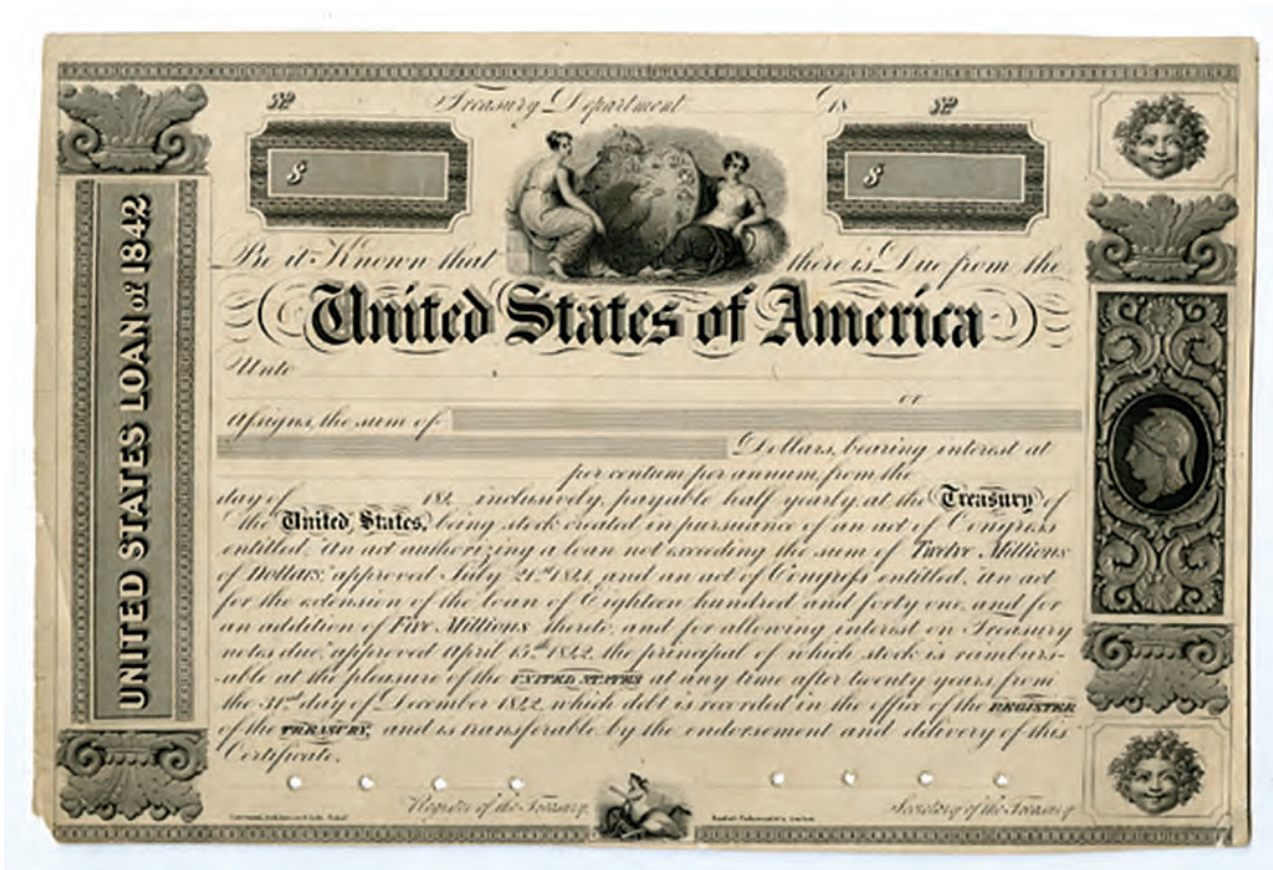 UNITED STATES LOAN of 1842
No Treasury Department 18 No
$ $
Be it Known that there is Due from the
United States of America
Unto
or
assigns, the sum of
Dollars, bearing interest at
per centum per annum, from the
day of 184 inclusively, payable half yearly, at the Treasury of
the United States, being stock created in pursuance of an act of Congress
entitled, "An act authorizing a loan not exceeding the sum of Twelve Millions
of Dollars," approved July 21st 1841, and an act of Congress entitled, "An act
for the extension of the loan of Eighteen hundred and forty one, and for
an addition of Five Millions thereto, and for allowing interest on Treasury
notes due," approved April 15th 1842, the principal of which stock is reimburs-
-able at the pleasure of the UNITED STATES at any time after twenty years from
the 31st day of December 1842 which debt is recorded in the office of the REGISTER
of the TREASURY, and is transferable by the endorsement and delivery of this
Certificate.
Register of the Treasury. Secretary of the Treasury